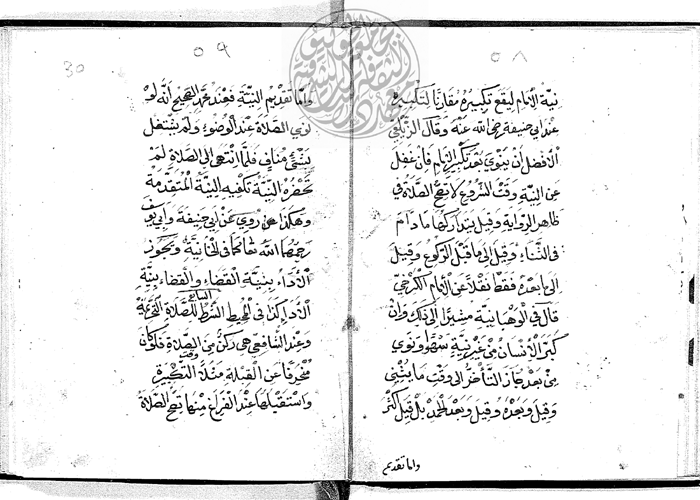 ٥٨
نية الإمام ليقع تكبيره مقارنا لتكبيره
عند ابي حنيفة رضي الله عنه وقال الزيلعي
الأفضل أن ينوي بعد تكبير الإمام فان غفل
عن النية وقت الشروع لا تصح الصلاة في
ظاهر الرواية وقيل يتداركها ما دام
في الثناء وقيل الى ما قبل الركوع وقيل
الى ما بعده فقط نقلا عن الإمام الكرخي
قال في الوهبانية مشيرا الى ذلك وان
كبر الأنسان من غير نية سهوا ونوى
من بعد جاز التأخر الى وقت ما يثني
وقيل وبعده وقيل وبعد الحمد بل قيل اكثر
واما تقديم
٥٩
30
واما تقديم النية فعند محمد الصحيح أنه لو
نوى الصلاة عند الوضوء ولم يشتغل
بشئ مناف فلما انتهى الى الصلاة لم
تحضره النية تكفيه النية المتقدمة
وهكذا روي عن ابي حنيفة وابي يوسف
رحمهما الله تعالى كما في الخانية وتجوز
الأداء بنية القضاء والقضاء بنية
الأداء كذا في المحيط الشرط السابع للصلاة التحريمة
وعند الشافعي هي ركن من الصلاة فلو كان
منحرفا عن القبلة مثلا وقت التكبيرة
واستقبلها عند الفراغ منها تصح الصلاة